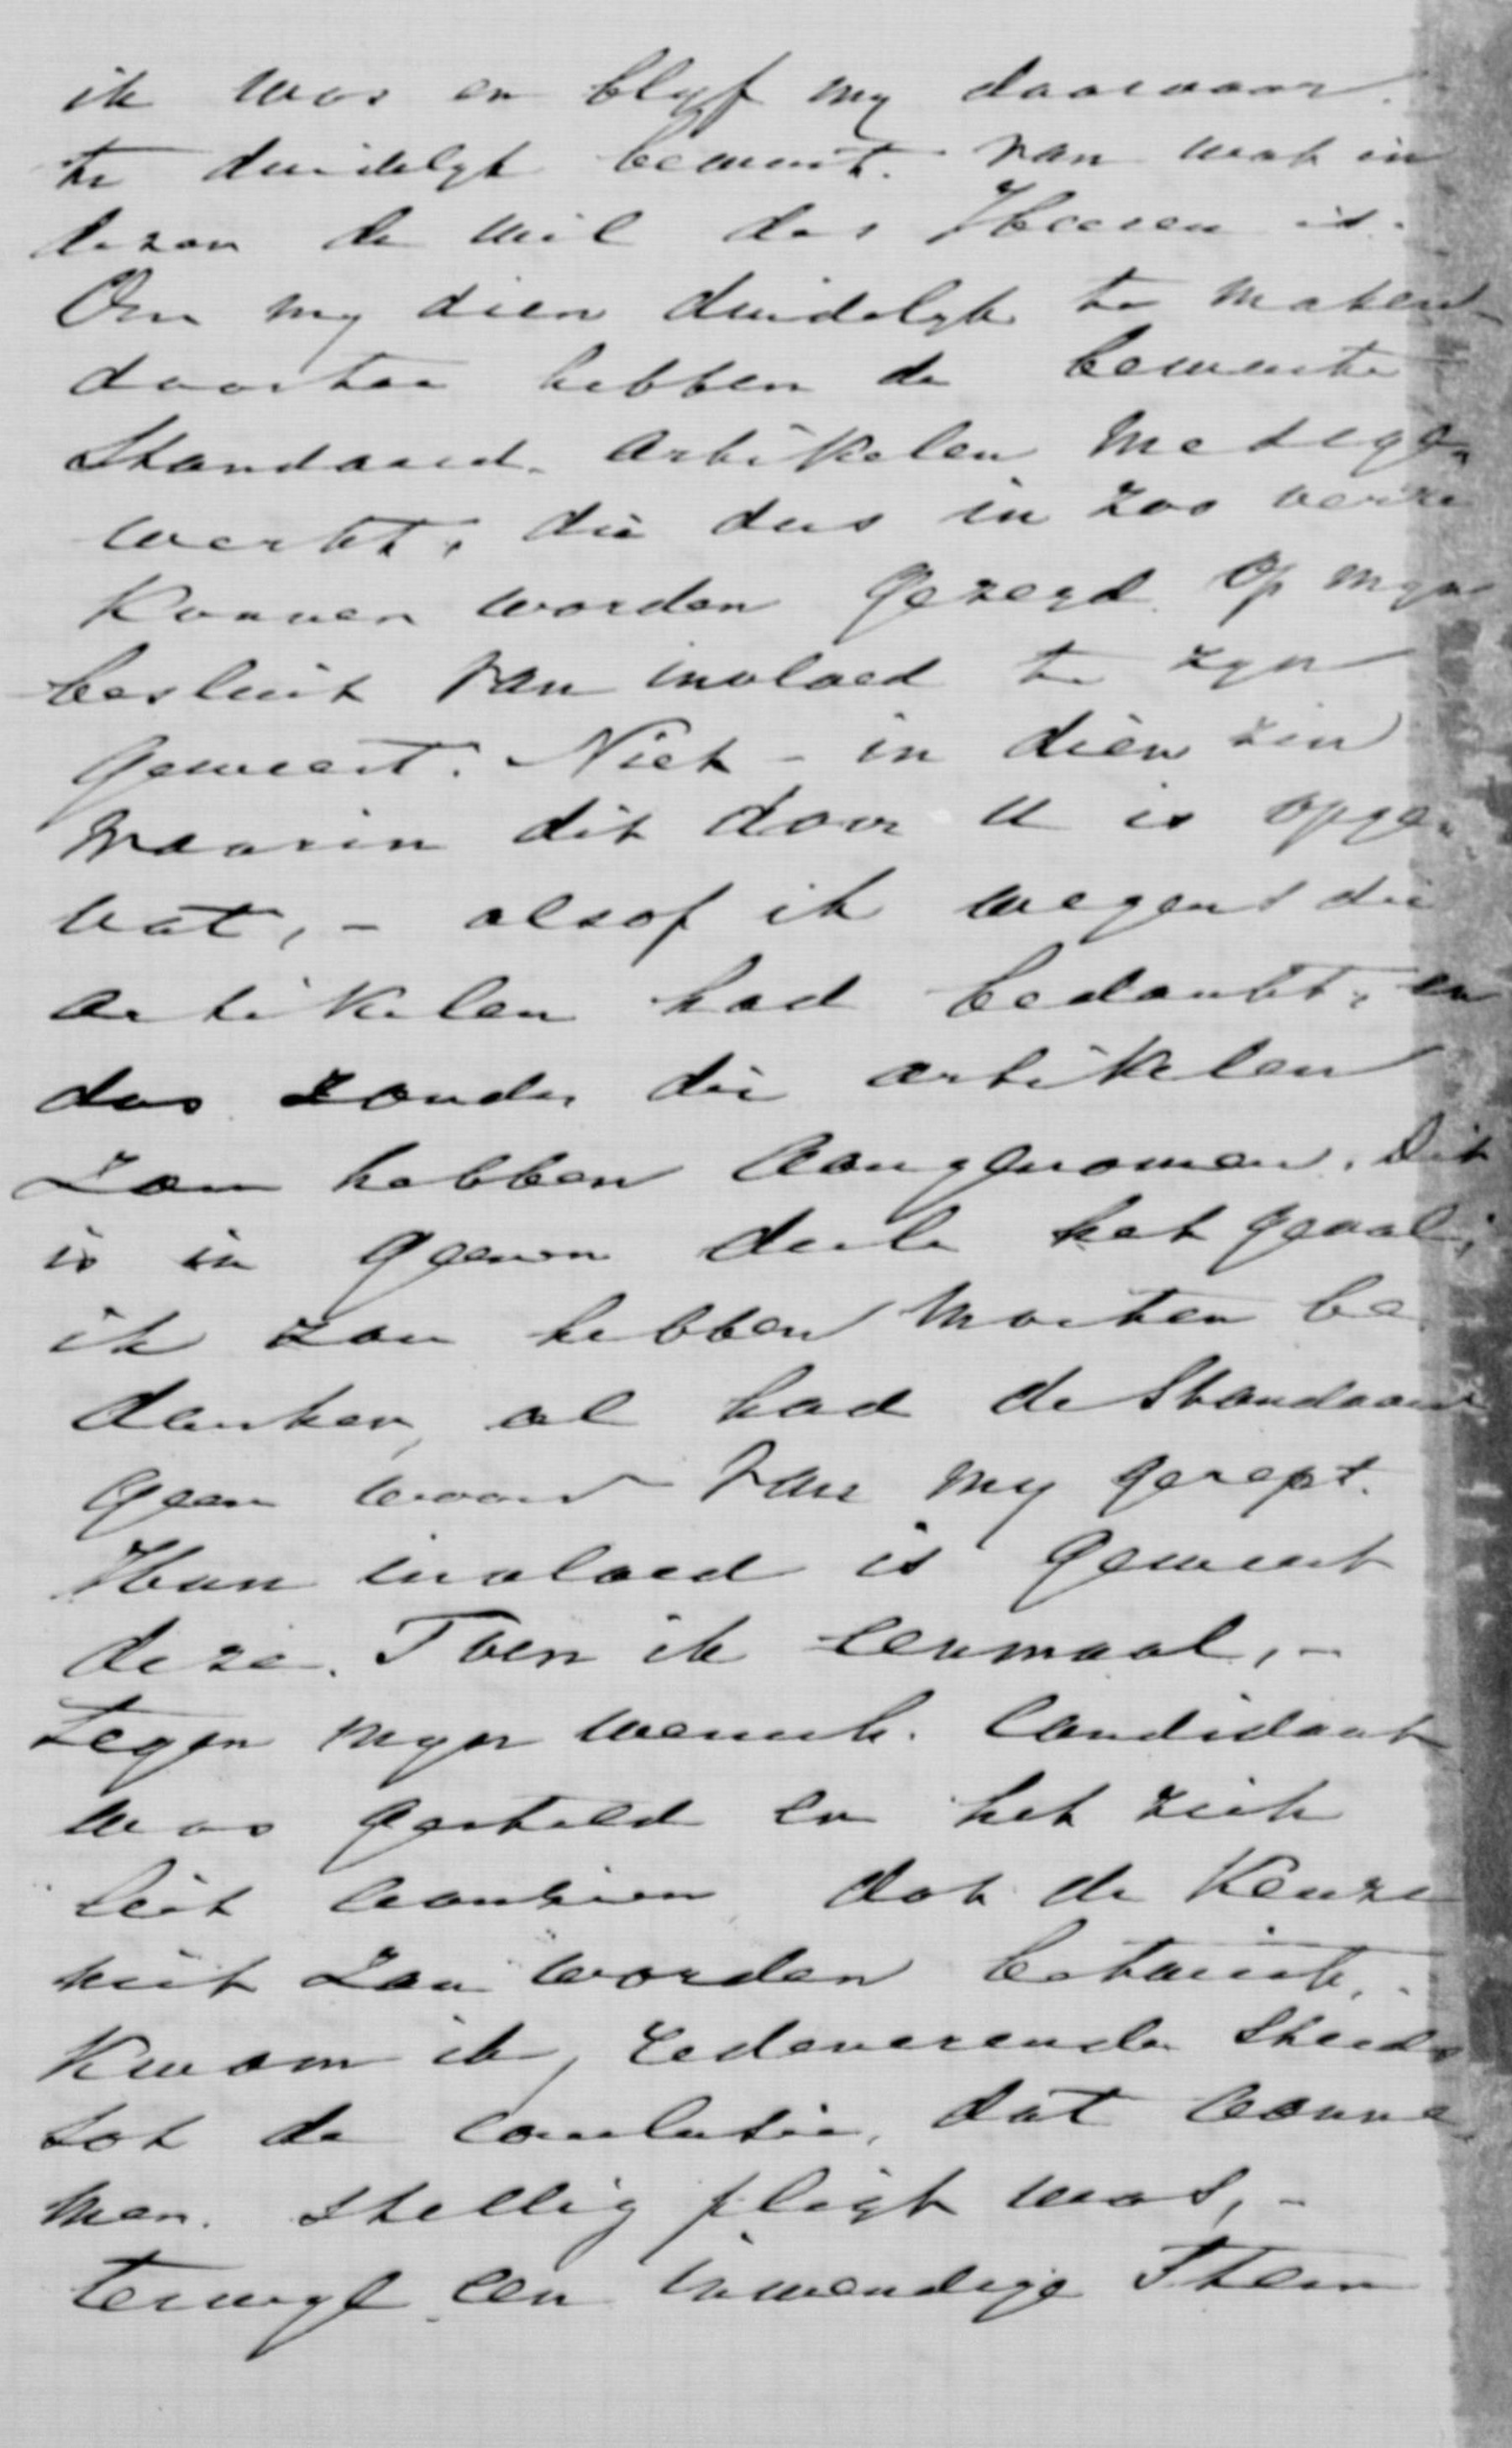 ik was en blyf my daarvoor
te duidelyk bewust van wat in
dezen de wil des Heeren is.
Om my dien duidelyk te maken
daartoe hebben de bewuste
Standaard-artikelen medege-
werkt, die dus in zoo verre
kunnen worden gezegd op myn
besluit van invloed te zyn
geweest. Niet - in dien zin
waarin dit door U is opge-
vat, - alsof ik wegens die
artikelen had bedankt, en
dus zonder die artikelen
zou hebben aangenomen. Dit
is in geenen deele het geval;
ik zou hebben moeten be
danken, al had de Standaard
geen woord van my gerept.
Hun invloed is geweest
deze. Toen ik eenmaal, -
tegen myn wensch. Candidaat
was gesteld en het zich
liet aanzien dat de keuze
niet zou worden betwist,
kwam ik, redeneerende steeds
tot de conclusie, dat aanne
men stellig pligt was, -
terwyl een inwendige Stem